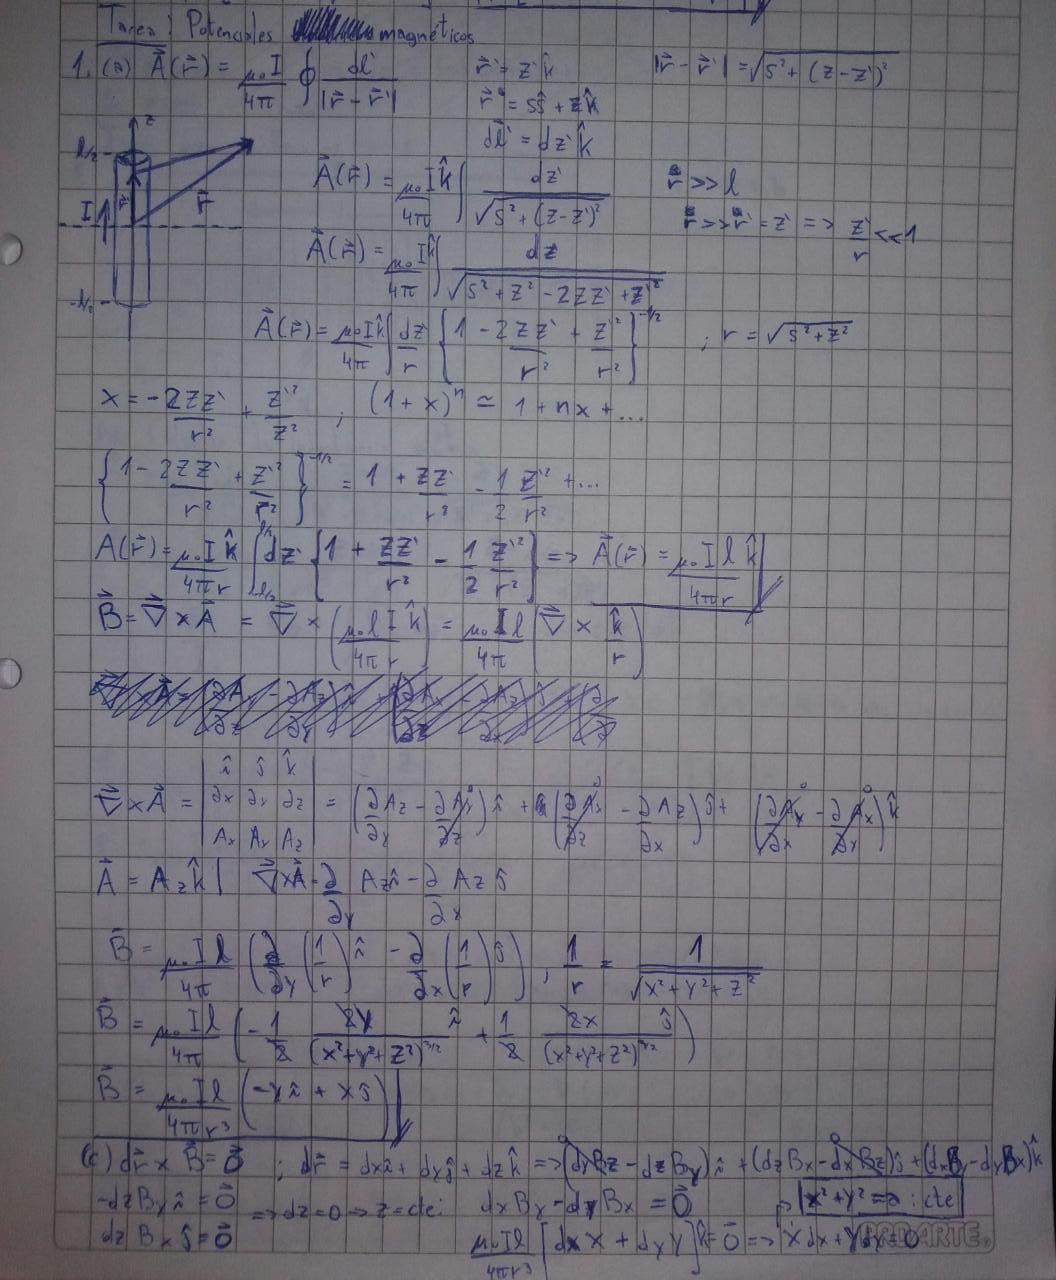 Tarea: Potenciales magnéticos
1. (a) A⃗(r⃗) = μ₀I/4π ∮ dl⃗'/|r⃗ - r⃗'|   r⃗' = z' k̂   |r⃗ - r⃗'| = √(s² + (z-z')²)
r⃗ = sŝ + zk̂
dl⃗' = dz' k̂
z
l/2
I
r⃗'
r⃗
-l/2
A⃗(r⃗) = μ₀I k̂/4π ∫ dz'/√(s² + (z-z')²)   r >> l
r >> r' = z' => z'/r << 1
A⃗(r⃗) = μ₀I k̂/4π ∫ dz'/√(s² + z² - 2zz' + z'²)
A⃗(r⃗) = μ₀I k̂/4π ∫ dz'/r {1 - 2zz'/r² + z'²/r²}^(-1/2)   ; r = √(s² + z²)
x = -2zz'/r² + z'²/z²   ; (1+x)ⁿ ≃ 1 + nx + ...
{1 - 2zz'/r² + z'²/r²}^(-1/2) = 1 + zz'/r² - 1/2 z'²/r² + ...
A(r⃗) = μ₀I k̂/4πr ∫ dz' {1 + zz'/r² - 1/2 z'²/r²} => A⃗(r⃗) = μ₀ I l k̂/4πr
B⃗ = ∇⃗ × A⃗ = ∇⃗ × (μ₀ l I k̂/4π r) = μ₀ I l/4π (∇⃗ × k̂/r)
∇⃗ × A⃗ = | î ĵ k̂ ; ∂x ∂y ∂z ; Ax Ay Az | = (∂Az/∂y - ∂Ay/∂z) î + (∂Ax/∂z - ∂Az/∂x) ĵ + (∂Ay/∂x - ∂Ax/∂y) k̂
A⃗ = Az k̂ | ∇⃗×A⃗ = ∂/∂y Az î - ∂/∂x Az ĵ
B⃗ = μ₀ I l/4π (∂/∂y (1/r) î - ∂/∂x (1/r) ĵ) , 1/r = 1/√(x² + y² + z²)
B⃗ = μ₀ I l/4π (-1/2 2y/(x²+y²+z²)^(3/2) î + 1/2 2x/(x²+y²+z²)^(3/2) ĵ)
B⃗ = μ₀ I l/4πr³ (-y î + x ĵ)
(c) dr⃗ × B⃗ = 0⃗ ; dr⃗ = dx î + dy ĵ + dz k̂ => (dyBz - dzBy) î + (dzBx - dxBz) ĵ + (dxBy - dyBx) k̂
-dzBy î = 0⃗ => dz = 0 → z = cte:   dxBy - dyBx = 0⃗   x² + y² = a : cte
dz Bx ĵ = 0⃗   μ₀Il/4πr³ [dx x + dy y] k̂ = 0⃗ => x dx + y dy = 0
PROARTE®